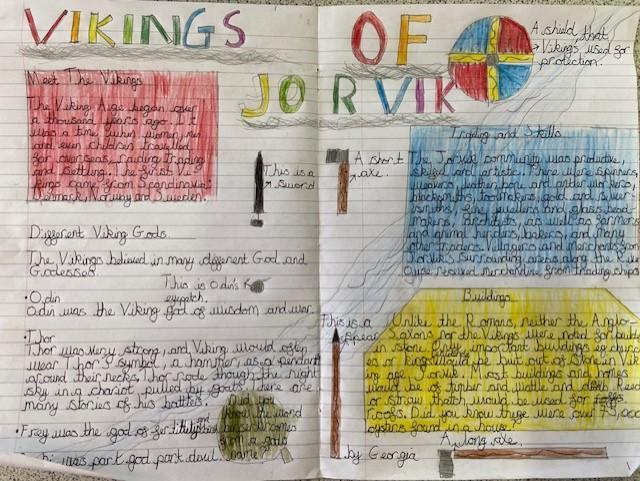 VIKINGS OF
JORVIK
A shield that
Vikings used for
protection.
Meet The Vikings
The Viking Age began over
a thousand years ago. It
was a time when women, men
and even children travelled
for overseas, raiding Trading
and settling. The first Vi
kings came from Scandinavia:
Denmark, Norway and Sweden.
This is a
sword
A short
axe.
Different Viking Gods.
The Vikings believed in many different God and
Godesses
This is Odin's
eyepatch.
• Odin
Odin was the Viking god of wisdom and war
• Thor
Thor was very strong, and Viking would often
wear Thor's symbol, a hammer, as a pendant
around their necks. Thor rode though the night
sky in a chariot pulled by goats. There are
many stories of his battles.
know the world
• Frey was the god of fertility and
comes
from a gods
was part god part devil.
name
Trading and Skills
The Jorvik community was productive,
skilful and artistic. There were spinners,
weavers, leather, bone and antler workers,
blacksmiths, toolmakers, gold and silver
smiths, fine jewellers and glass bead
makers, architects, as well as farmers
and animal herders, bakers, and many
other traders. Villagers and merchants from
Jorvik's surrounding areas along the River
Ouse received merchandise from trading ships
Buildings
Unlike the Romans, neither the Anglo-
Saxons or the Vikings were noted for building
in stone. Only important buildings
or be built out of stone in Vik
in age Jorvik. Most buildings and homes
would be of timber and wattle and
or straw thatch would be used for
roofs. Did you know there were over
oysters found in a house?
This is a
spear
by Georgia
A long axe.